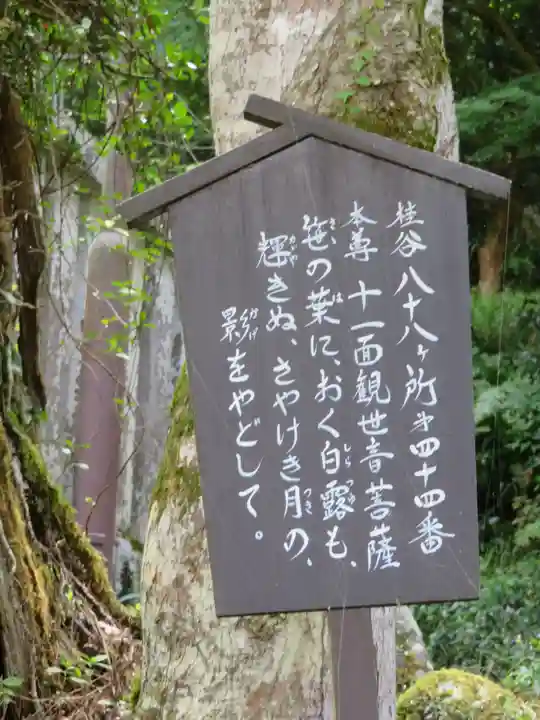 桂谷八十八ヶ所㐧四十四番
本尊 十一面観世音菩薩
笹の葉に、おく白露も、
輝きぬ、さやけき月の、
景をやどして。